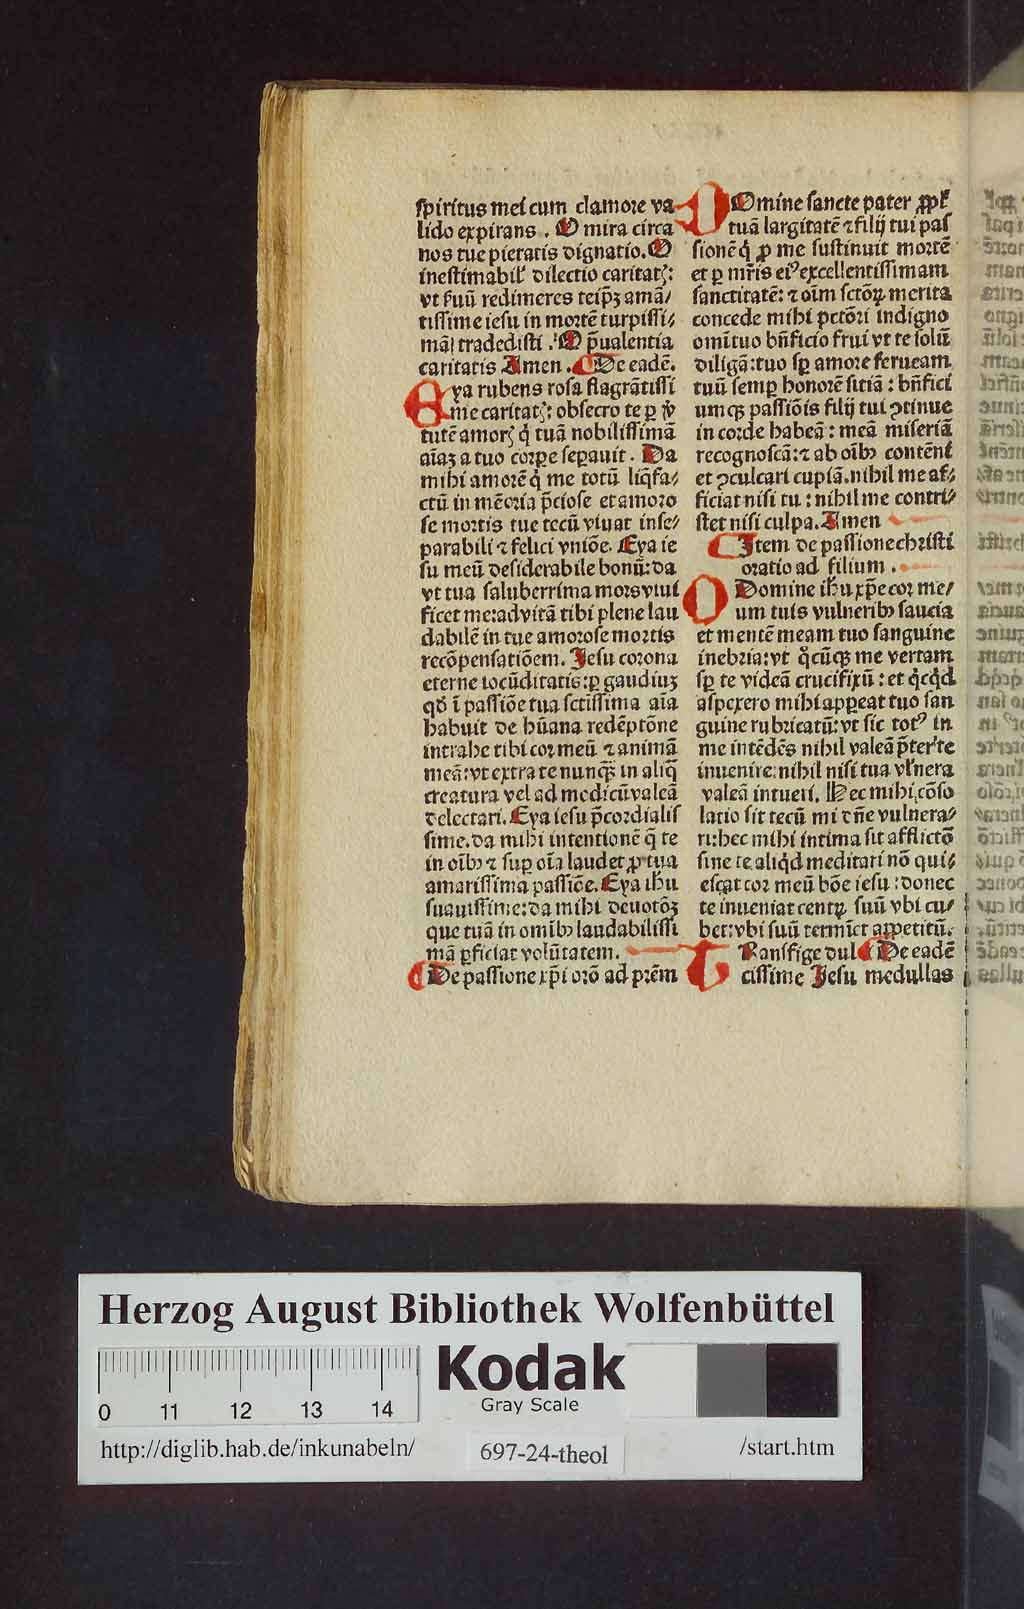 spiritus mei cum clamore va
lido expirans . O mira circa
nos tue pietatis dignatio. O
inestimabil' dilectio caritatꝫ:
vt ẜuū redimeres teip̄ꝫ amā⸗
tissime iesu in mortē turpissi⸗
mā tradedisti . O p̄ualentia
caritatis Amen . De eadē.
Eya rubens rosa flagrātissi
me caritatꝫ: obsecro te ꝑ
tutē amorꝫ q̇ tuā nobilissimā
aīaꝫ a tuo corꝑe seꝑauit . Da
mihi amorē q̇ me totū liq̄fa⸗
ctū in mēoria p̄ciose et amoro
se mortis tue tecū viuat inse⸗
parabili ⁊ felici vniōe. Eya ie
su meū desiderabile bonū: da
vt tua saluberrima mors viui
ficet me: ad vitā tibi plene lau
dabilē in tue amorose mortis
recōpensatiōem. Iesu corona
eterne iocūditatis: ꝑ gaudiuꝫ
qd̄ ī passiōe tua sctīssima aīa
habuit de hūana redēptōne
intrahe tibi cor meū ⁊ animā
meā: vt extra te nunqꝫ in aliq̄
creatura vel ad modicū valeā
delectari. Eya iesu p̄cordialis
sime. da mihi intentionē q̄ te
in oībꝰ ⁊ suꝑ oīa laudet ꝓ tua
amarissima passiōe. Eya ihū
suauissime: da mihi deuotōꝫ
que tuā in omībꝰ laudabilissi
mā ꝑficiat volūtatem.
De passione xp̄i orō ad prēm
DOmine sancte pater ꝓpť
tuā largitatē ⁊ filij tui pas
sionē q̇ ꝓ me sustinuit mortē
et ꝑ mr̄is eiꝰ excellentissimam
sanctitatē: ⁊ oīm sctōꝝ merita
concede mihi pctōri indigno
omī tuo bn̄ficio frui vt te solū
diligā: tuo sꝑ amore ferueam
tuū semꝑ honorē sitiā : bn̄fici
umqꝫ passiōis filij tui ꝯtinue
in corde habeā : meā miseriā
recognoscā: ⁊ ab oībꝰ contēni
et ꝯculcari cupiā. nihil me af⸗
ficiat nisi tu : nihil me contri⸗
stet nisi culpa. Amen
Item de passione christi
oratio ad filium .
O Domine ihū xp̄e cor me⸗
um tuis vulneribꝰ saucia
et mentē meam tuo sanguine
inebria: vt q̊cūqꝫ me vertam
sꝑ te videā crucifixū : et q̇cq̇d
aspexero mihi apꝑeat tuo san
guine rubricatū: vt sic totꝰ in
me intēdēs nihil valeā p̄ter te
inuenire: nihil nisi tua vľnera
valeā intueri. Hec mihi cōso
latio sit tecū mi dn̄e vulnera⸗
ri: hec mihi intima sit afflictō
sine te aliq̇d meditari nō qui⸗
escat cor meū bōe iesu : donec
te inueniat centꝝ suū vbi cu⸗
bet: vbi suū termīet appetitū.
TRansfige dul De eadē
cissime Iesu medullas
Herzog August Bibliothek Wolfenbüttel
Kodak
Gray Scale
0 11 12 13 14
http://diglib.hab.de/inkunabeln/ 697-24-theol /start.htm